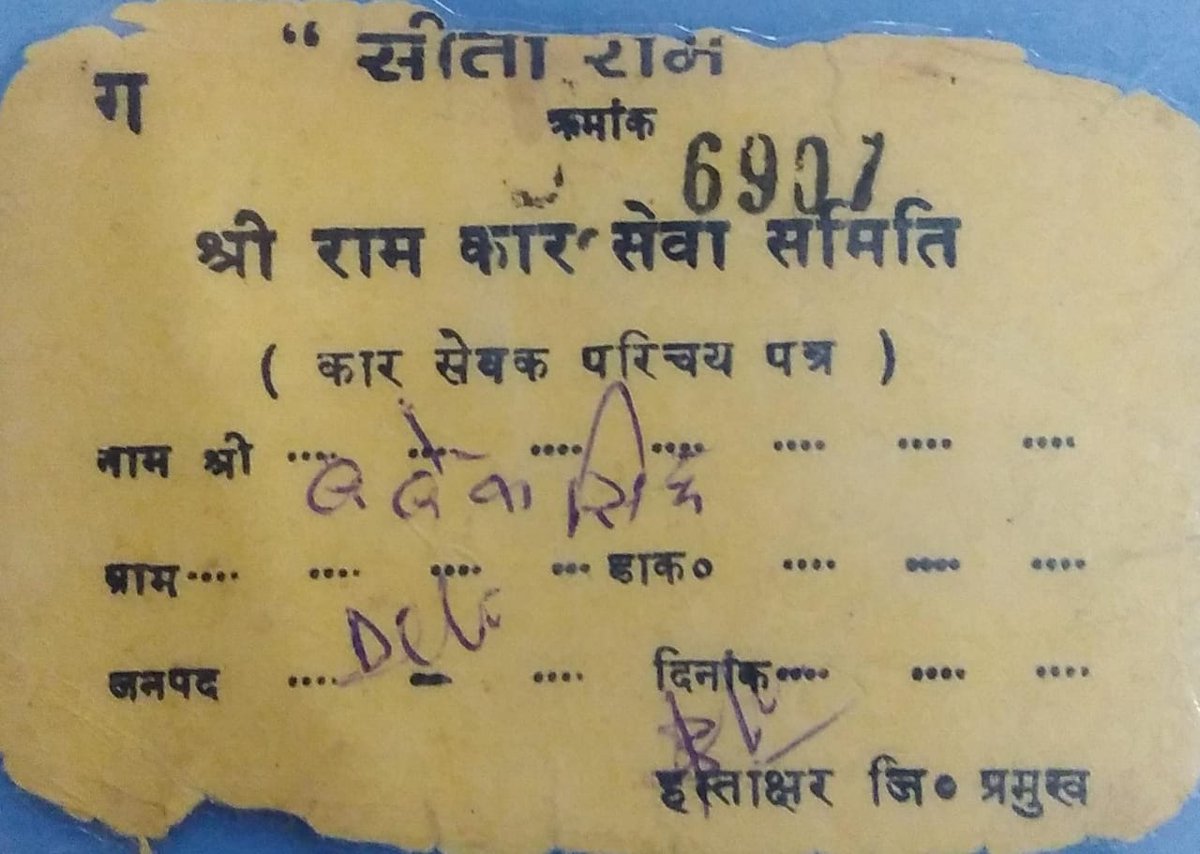 “ सीता राम
ग
क्रमांक
6901
श्री राम कार सेवा समिति
( कार सेवक परिचय पत्र )
नाम श्री .... .... .... .... .... .... ....
सिंह
ग्राम .... .... .... ... डाक० .... .... ....
Delhi
जनपद .... .... दिनांक .... .... ....
हस्ताक्षर जि० प्रमुख